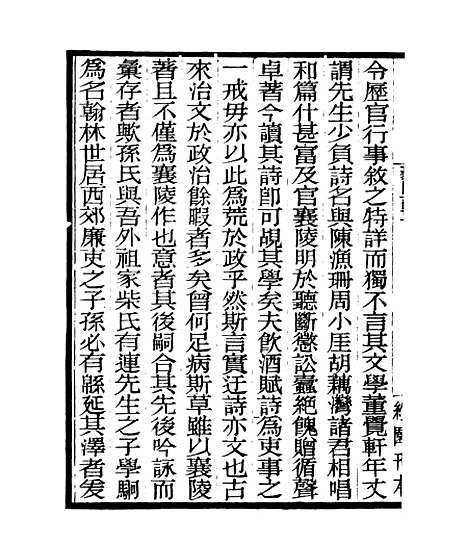 令歷官行事敘之特詳而獨不言其文學董覺軒年丈
謂先生少負詩名與陳漁珊周小厓胡藕灣諸君相唱
和篇什甚富及官襄陵明於聽斷懲訟蠹絕餽贈循聲
卓著今讀其詩卽可覘其學矣夫飲酒賦詩爲吏事之
一戒毋亦以此爲荒於政乎然斯言實迂詩亦文也古
來治文於政治餘暇者多矣曾何足病斯草雖以襄陵
著且不僅爲襄陵作也意者其後嗣合其先後吟詠而
彙存者歟孫氏與吾外祖家柴氏有連先生之子學駉
爲名翰林世居西郊廉吏之子孫必有緜延其澤者爰